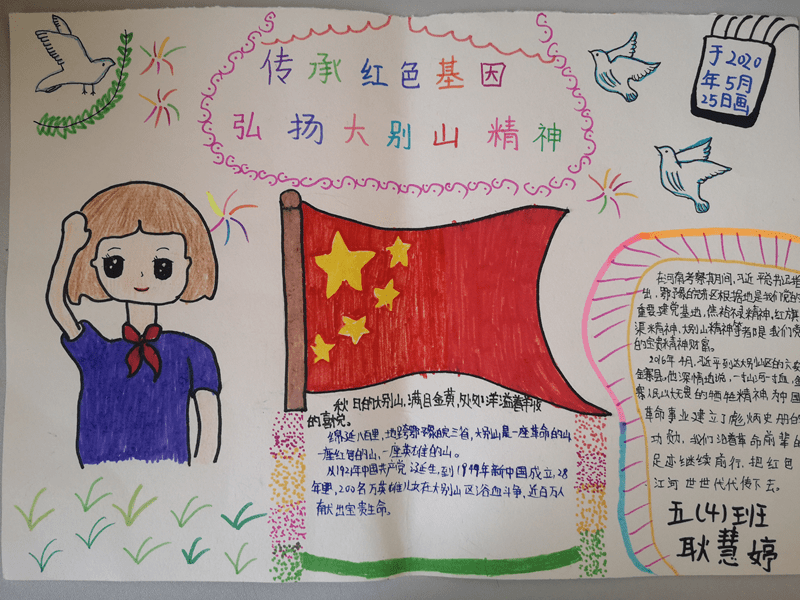 传承红色基因
弘扬大别山精神
于2020
年5月
25日画
秋日的大别山,满目金黄,处处洋溢着丰收
的喜悦。
绵延八百里,地跨鄂豫皖三省,大别山是一座革命的山
一座红色的山,一座英雄的山。
从1921年中国共产党诞生,到1949年新中国成立,28
年里,200名万英雄儿女在大别山区浴血斗争,近百万人
献出宝贵生命。
在河南考察其间,习近平总书记指
出,鄂豫皖苏区根据地是我们党的
重要建党基地,焦裕禄精神,红旗
渠精神,大别山精神等都是我们党
的宝贵精神财富。
2016年4月,习近平到达大别山区的六安
金寨县,他深情地说,一寸山河一寸血,金
寨人民以无畏的牺牲精神为中国
革命事业建立了彪炳史册的
功勋,我们沿着革命前辈的
足迹继续前行,把红色
江河世世代代传下去。
五(4)班
耿慧婷